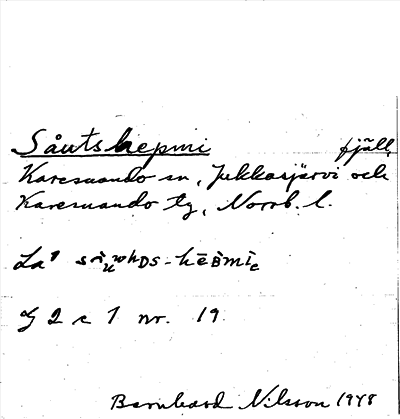 Såutshepmi fjäll,
Karesuando sn, Jukkasjärvi och
Karesuando tg, Norrb. l.
La
G 2 c 1 nr. 19
Barnhard Nilsson 1948